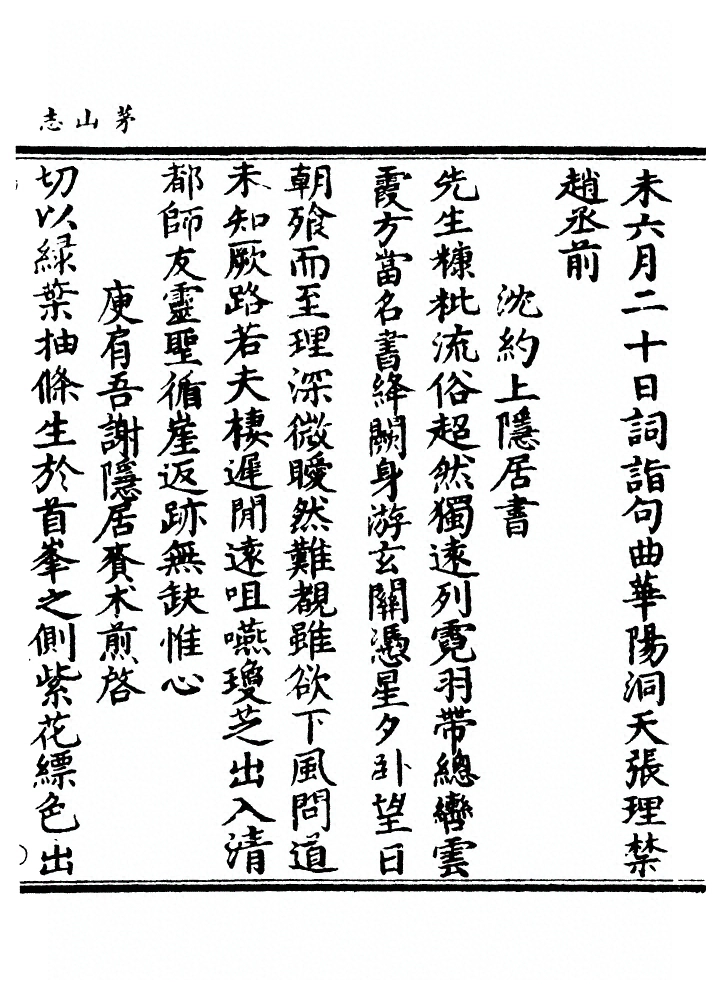 茅山志
未六月二十日詞詣句曲華陽洞天張理禁
趙丞前
沈約上隱居書
先生糠粃流俗超然獨遠列霓羽帶總轡雲
霞方當名書絳闕身游玄關憑星夕卧望日
朝飱而至理深微曖然難覩雖欲下風問道
未知厥路若夫棲遲閒遠咀嚥瓊芝出入清
都師友靈聖循崖返跡無缺惟心
庾肩吾謝隱居賚术煎啓
切以緑葉抽條生於首峯之側紫花縹色出